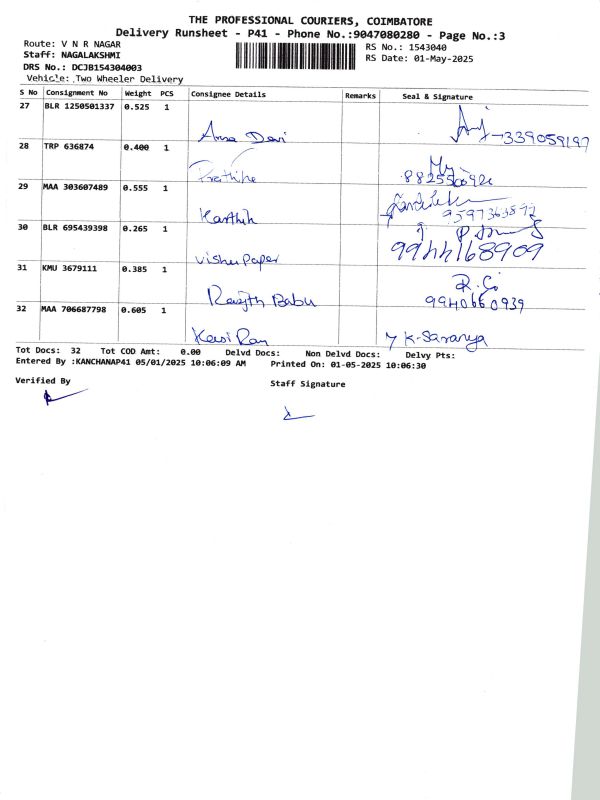 THE PROFESSIONAL COURIERS, COIMBATORE
Delivery Runsheet - P41 - Phone No.:9047080280 - Page No.:3
Route: V N R NAGAR RS No.: 1543040
Staff: NAGALAKSHMI RS Date: 01-May-2025
DRS No.: DCJB154304003
Vehicle: Two Wheeler Delivery
S No Consignment No Weight PCS Consignee Details Remarks Seal & Signature
27 BLR 1250501337 0.525 1
Devi -339059197
28 TRP 636874 0.400 1
29 MAA 303607489 0.555 1
Karthik
30 BLR 695439398 0.265 1
Paper 9944168909
31 KMU 3679111 0.385 1
Babu 9940660939
32 MAA 706687798 0.605 1
K-Saranya
Tot Docs: 32 Tot COD Amt: 0.00 Delvd Docs: Non Delvd Docs: Delvy Pts:
Entered By :KANCHANAP41 05/01/2025 10:06:09 AM Printed On: 01-05-2025 10:06:30
Verified By
Staff Signature